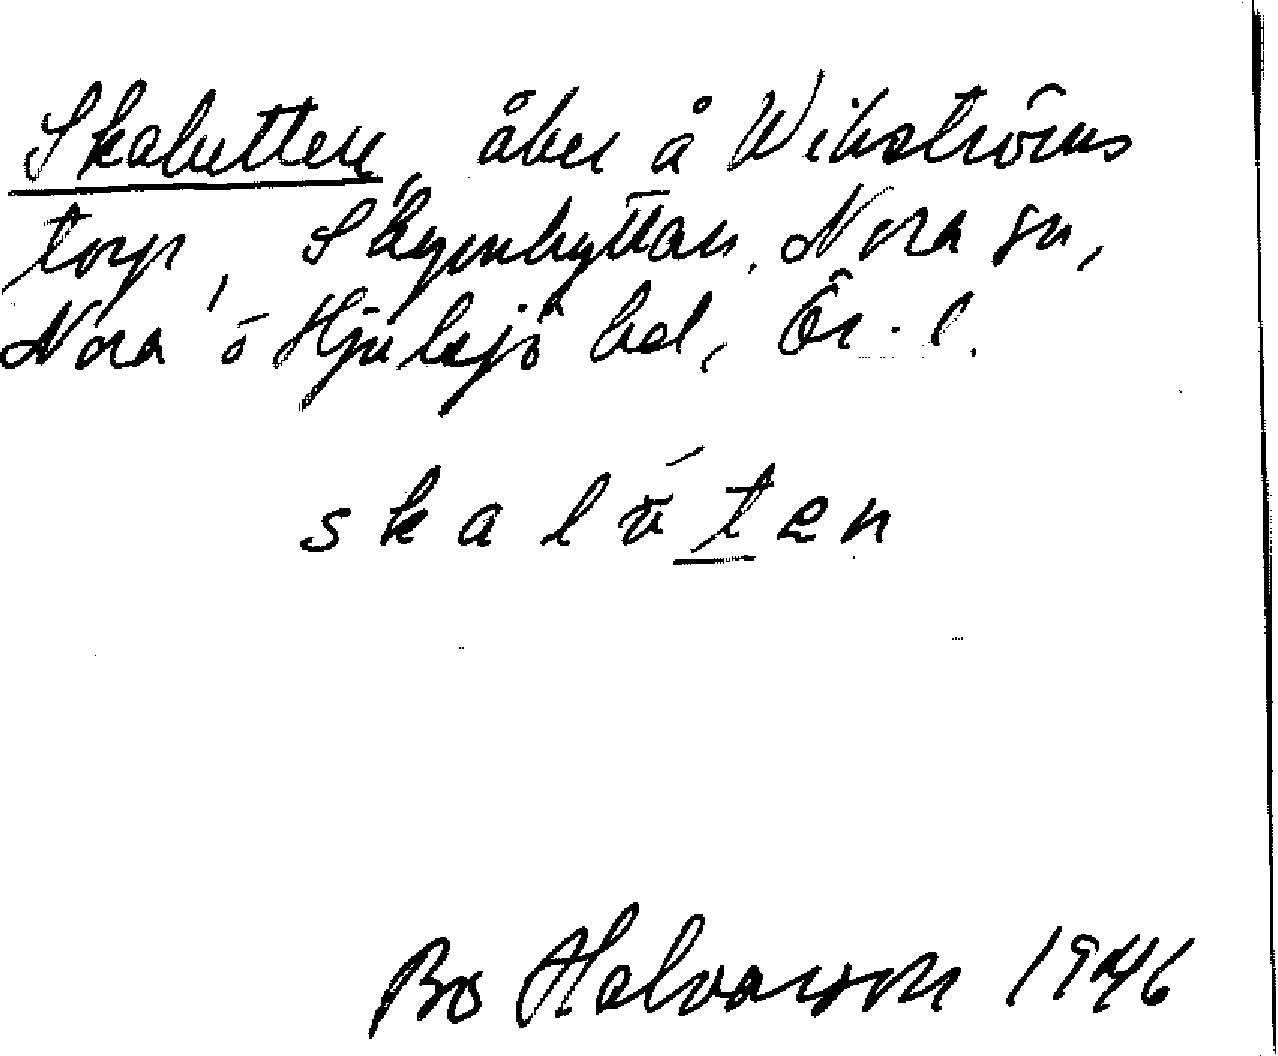 Skalutten, åker å Wikströms
torp, Skrymhyttan, Nora sn,
Nora o Hjulsjö bd, Ör. l.
skalūten
Bo Halvarson 1946